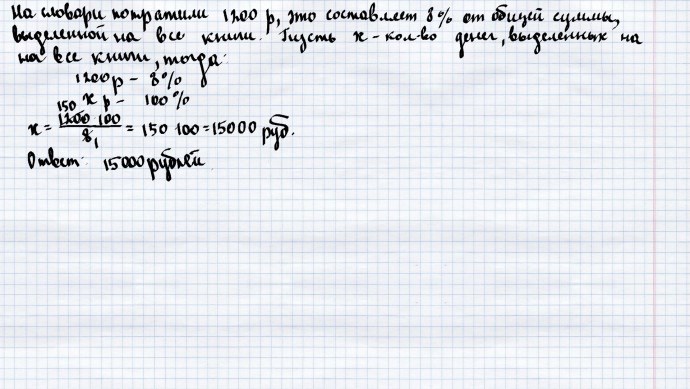 На словари потратили 1200 р, это составляет 8% от общей суммы,
выделенной на все книги. Пусть x - кол-во денег, выделенных на
на все книги, тогда:
1200 р - 8%
x р - 100%
x = 1200 · 100 / 8 = 150 · 100 = 15000 руб.
150
1
Ответ: 15000 рублей